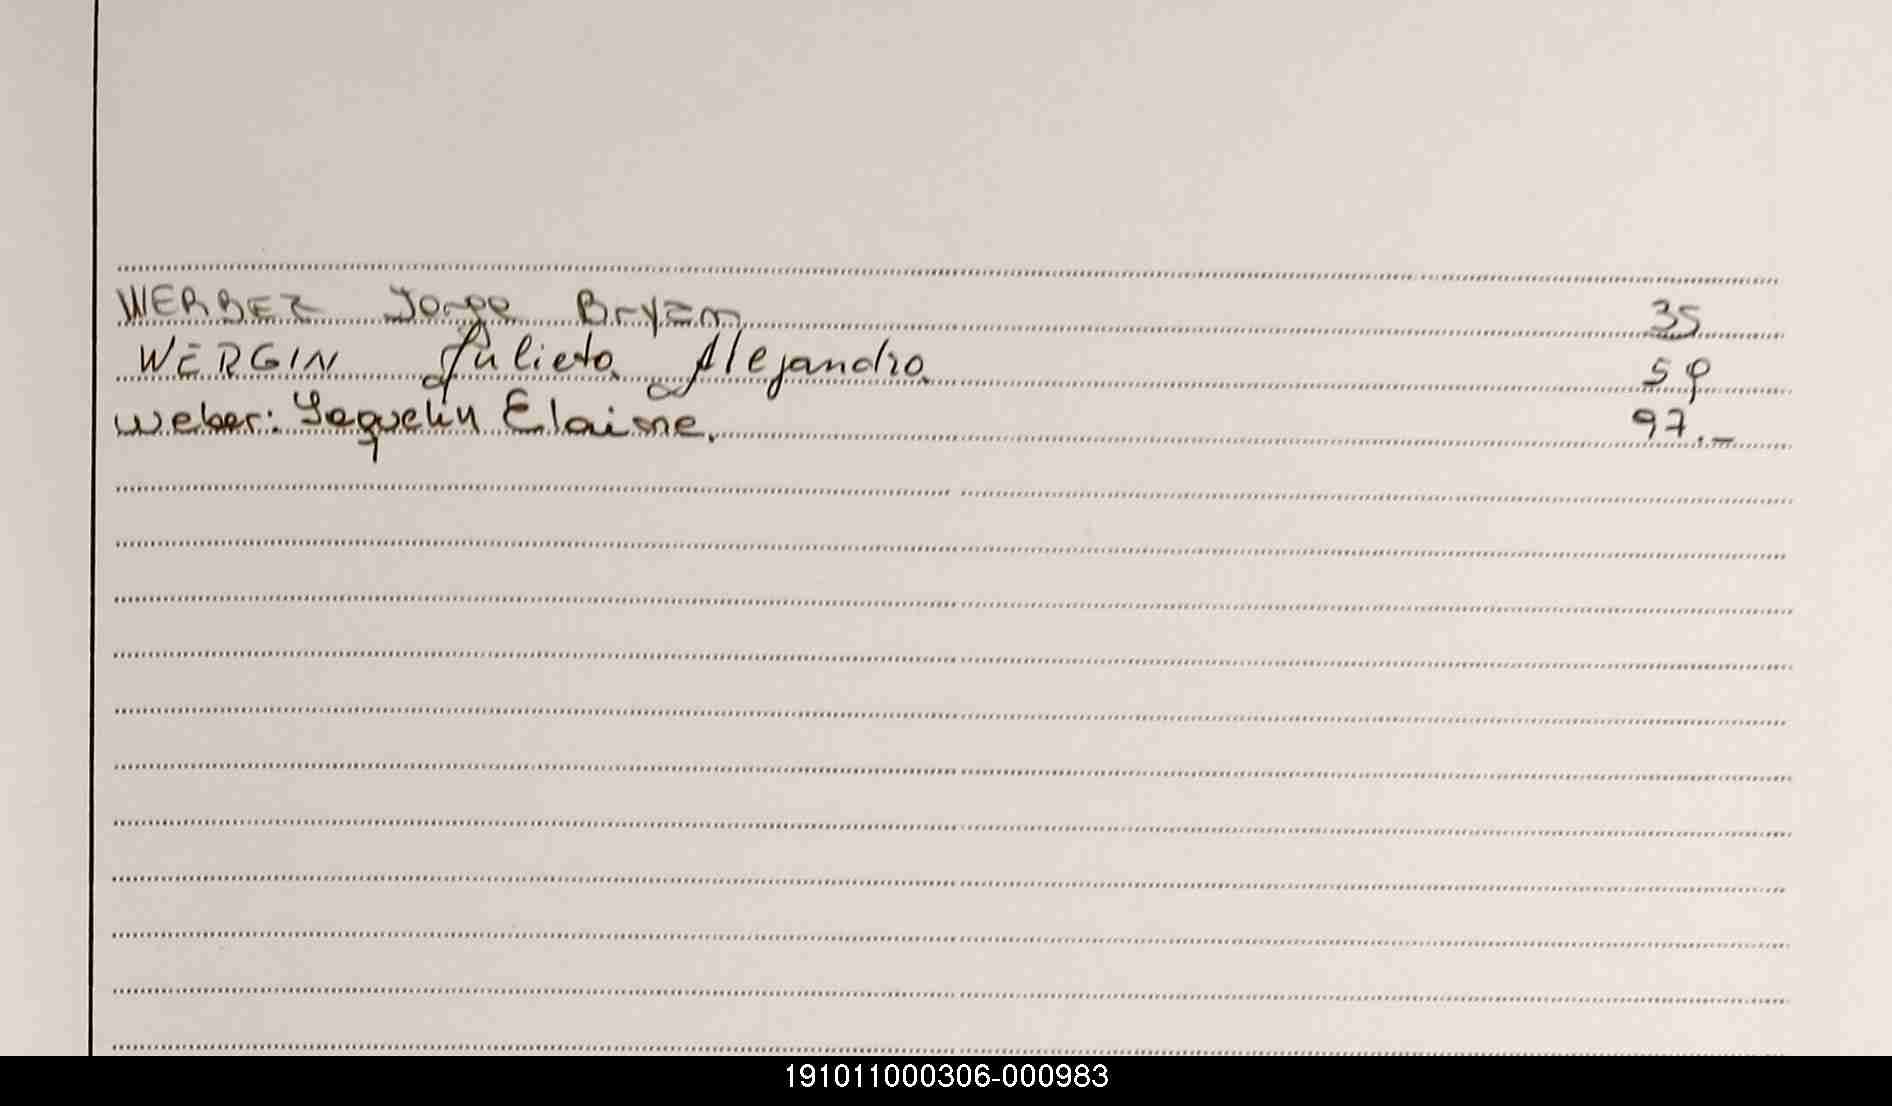 WERBEZ Jorge Bryan 35
WERGIN Julieta Alejandra 59
Weber: Yaquelin Elaine. 97.-
191011000306-000983